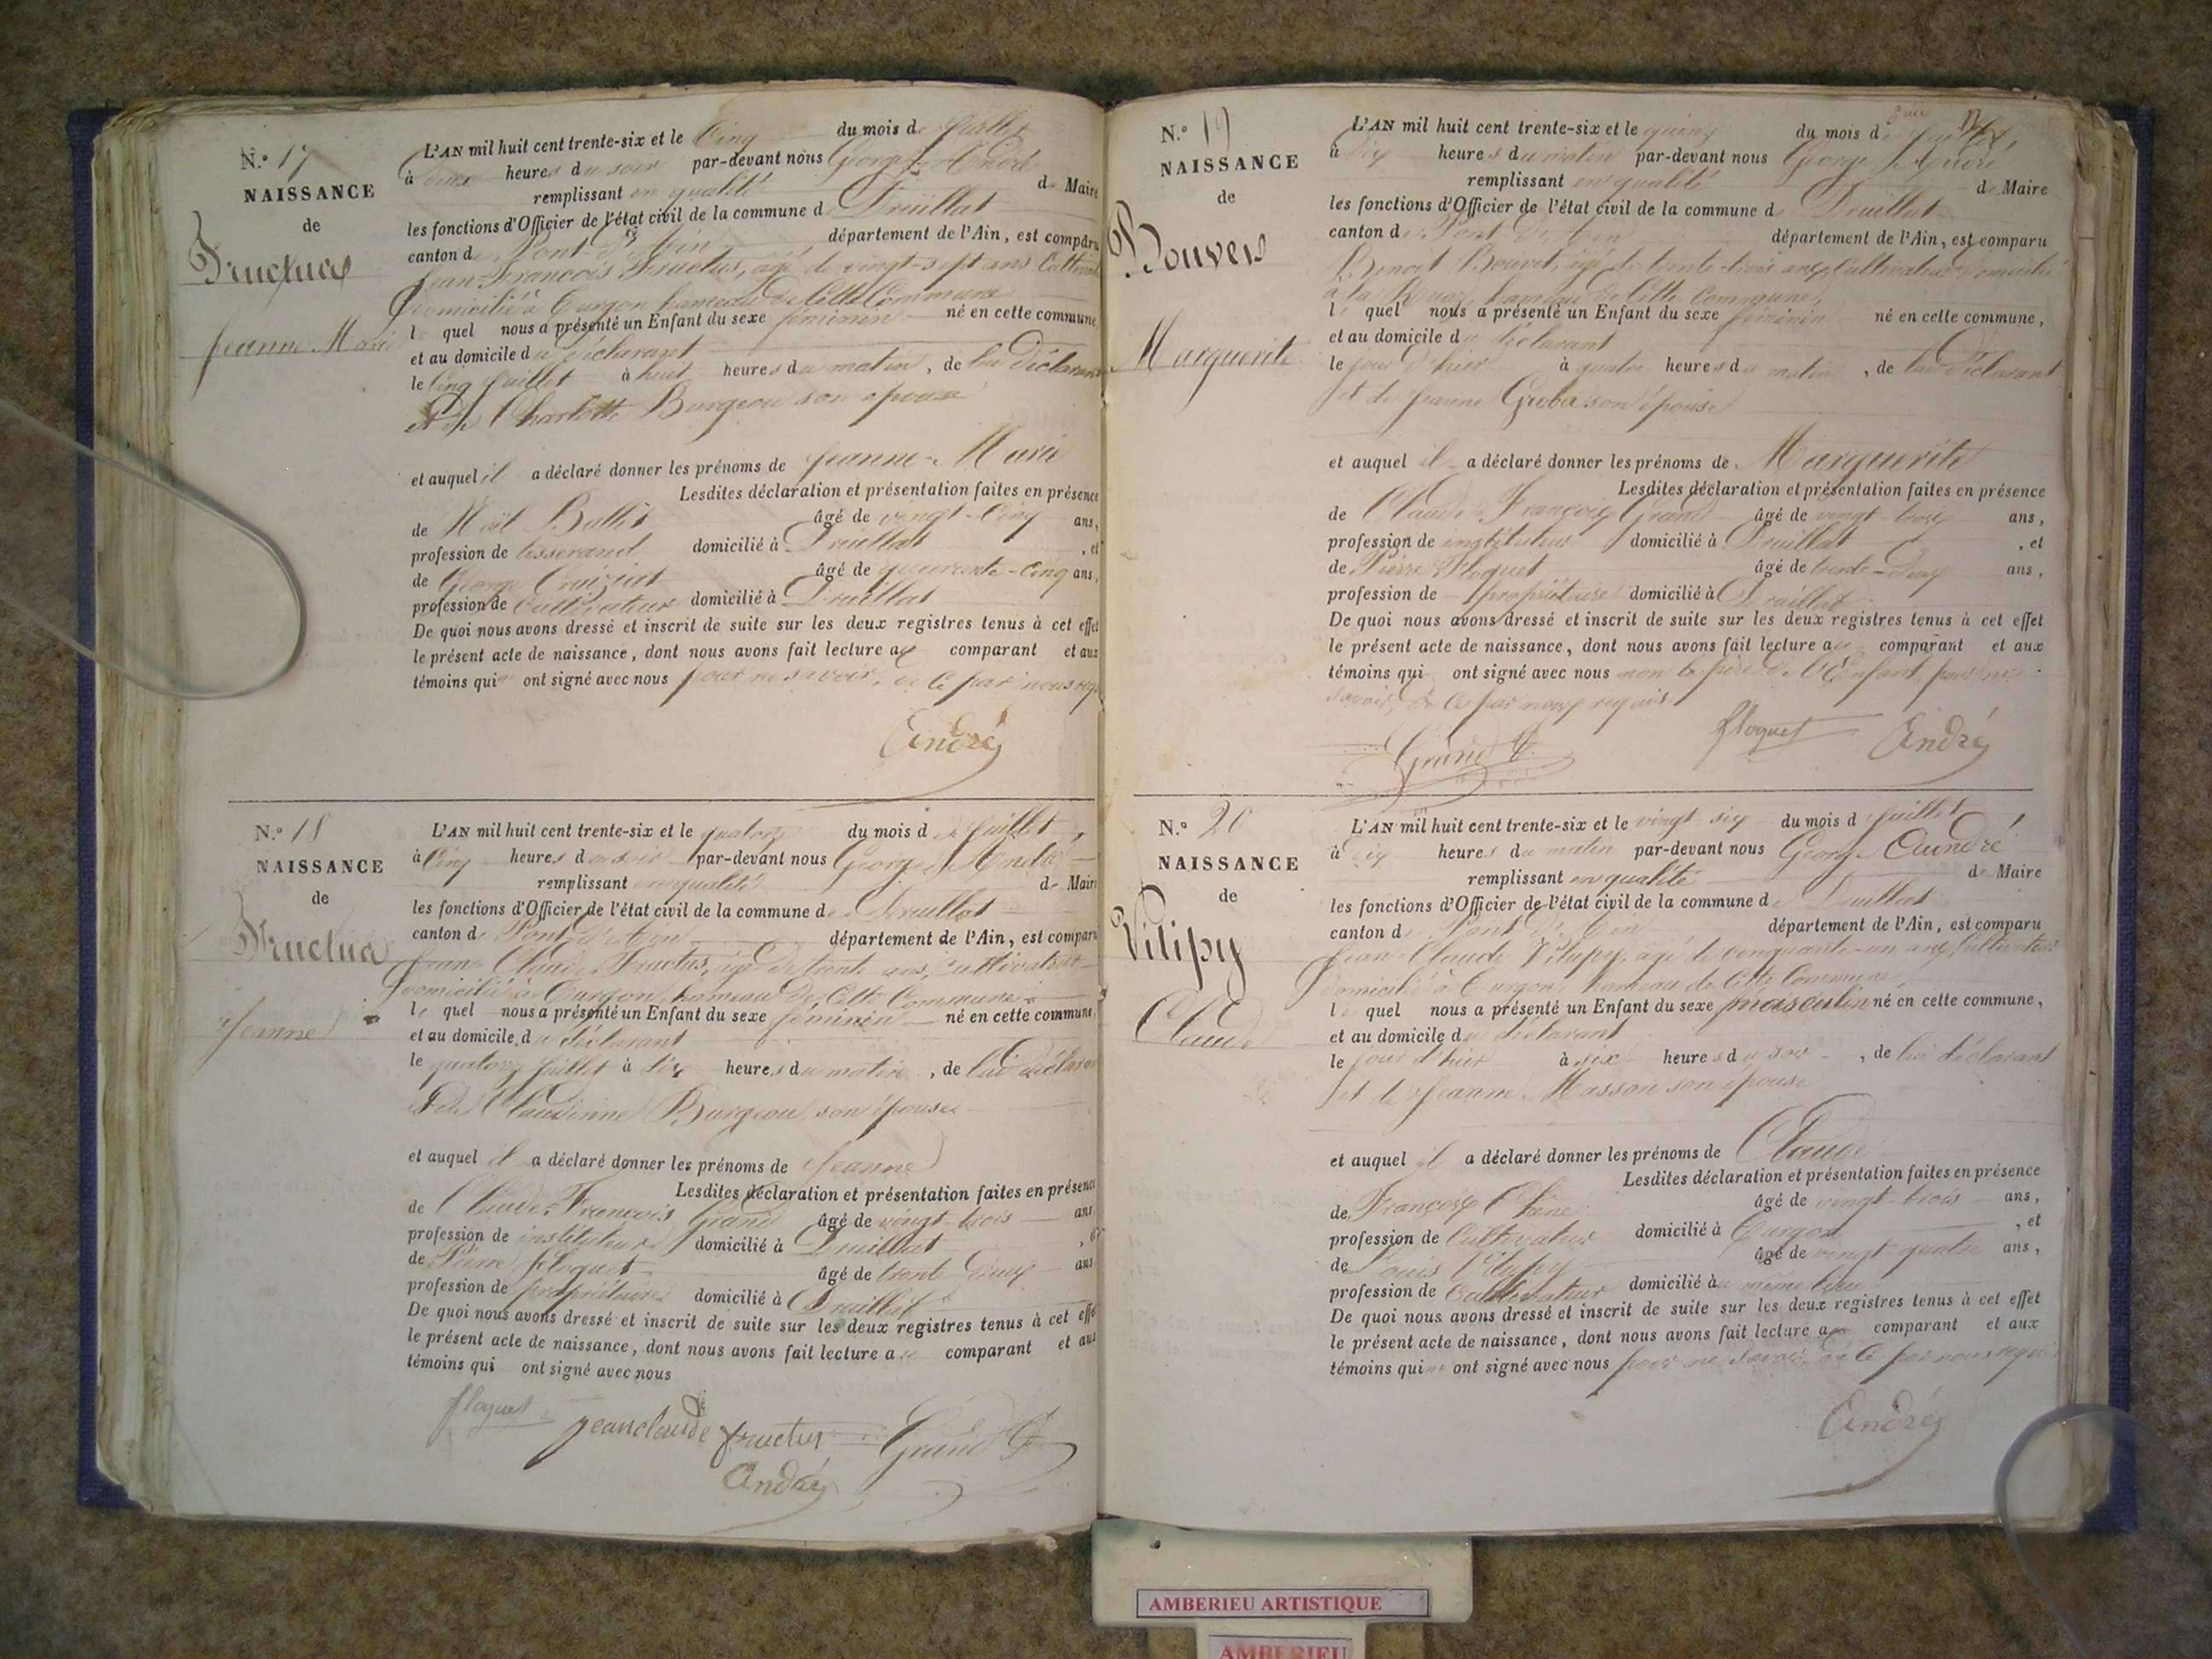 N.° 17
NAISSANCE
de
Fructus
Jeanne Marie
L'AN mil huit cent trente-six et le Cinq du mois de Juillet
à deux heures du soir par-devant nous George André
remplissant en qualité de Maire
les fonctions d'Officier de l'état civil de la commune de Druillat
canton de Pont d'Ain département de l'Ain, est comparu
Jean François Fructus, agé de vingt-sept ans Cultivateur
domicilié à Turgon hameau de Cette Commune
lequel nous a présenté un Enfant du sexe féminin né en cette commune
et au domicile du déclarant
le Cinq Juillet à huit heures du matin, de lui déclarant
et de Charlotte Burgeon son épouse
et auquel il a déclaré donner les prénoms de Jeanne-Marie
Lesdites déclaration et présentation faites en présence
de âgé de vingt-Cinq ans,
profession de tisserand domicilié à Druillat, et
de George âgé de quarante-Cinq ans,
profession de Cultivateur domicilié à Druillat
De quoi nous avons dressé et inscrit de suite sur les deux registres tenus à cet effet
le présent acte de naissance, dont nous avons fait lecture au comparant et aux
témoins qui n'ont signé avec nous pour ne savoir, de Ce par nous requis
André
N.° 18
NAISSANCE
de
Fructus
Jeanne
L'AN mil huit cent trente-six et le quatorze du mois de Juillet,
à Cinq heures du soir par-devant nous George André
remplissant en qualité de Maire
les fonctions d'Officier de l'état civil de la commune de Druillat
canton de Pont d'Ain département de l'Ain, est comparu
Jean Claude Fructus, agé de trente ans, Cultivateur
domicilié à Turgon, hameau de Cette Commune
lequel nous a présenté un Enfant du sexe féminin né en cette commune,
et au domicile du déclarant
le quatorze Juillet à dix heures du matin, de lui déclarant
et de Claudinne Burgeon, son épouse
et auquel il a déclaré donner les prénoms de Jeanne
Lesdites déclaration et présentation faites en présence
de Claude François Grand âgé de vingt-trois ans,
profession de instituteur domicilié à Druillat, et
de Pierre floquet âgé de trente Deux ans
profession de propriétaire domicilié à Druillat
De quoi nous avons dressé et inscrit de suite sur les deux registres tenus à cet effet
le présent acte de naissance, dont nous avons fait lecture au comparant et aux
témoins qui ont signé avec nous
floquet jeanclaude fructus Grand
André
N.° 19
NAISSANCE
de
Bouvet
Marguerite
L'AN mil huit cent trente-six et le quinze du mois de Juillet,
à dix heures du matin par-devant nous George André
remplissant en qualité de Maire
les fonctions d'Officier de l'état civil de la commune de Druillat
canton de Pont d'Ain département de l'Ain, est comparu
Benoit Bouvet, agé de trente-trois ans, Cultivateur domicilié
à la hameau de Cette Commune,
lequel nous a présenté un Enfant du sexe féminin né en cette commune,
et au domicile du déclarant
le jour d'hier à quatre heures du matin, de lui déclarant
et de Jeanne Groba son épouse
et auquel il a déclaré donner les prénoms de Marguerite
Lesdites déclaration et présentation faites en présence
de Claude François Grand âgé de vingt-trois ans,
profession de instituteur domicilié à Druillat, et
de Pierre floquet âgé de trente-Deux ans,
profession de propriétaire domicilié à Druillat
De quoi nous avons dressé et inscrit de suite sur les deux registres tenus à cet effet
le présent acte de naissance, dont nous avons fait lecture au comparant et aux
témoins qui ont signé avec nous non le père de l'Enfant, pour ne
savoir, de Ce par nous requis
Grand floquet André
N.° 20
NAISSANCE
de
Vilipy
Claude
L'AN mil huit cent trente-six et le vingt six du mois d Juillet
à six heures du matin par-devant nous George André
remplissant en qualité de Maire
les fonctions d'Officier de l'état civil de la commune de Druillat
canton de Pont d'Ain département de l'Ain, est comparu
Jean-Claude Vilipy, agé de cinquante-un ans, Cultivateur
domicilié à Turgon, hameau de Cette Commune
lequel nous a présenté un Enfant du sexe masculin né en cette commune,
et au domicile du déclarant
le jour d'hier à six heures du soir, de lui déclarant
et de Jeanne Masson son épouse
et auquel il a déclaré donner les prénoms de Claude
Lesdites déclaration et présentation faites en présence
de François âgé de vingt-trois ans,
profession de Cultivateur domicilié à Turgon, et
de Louis Vilipy âgé de vingt quatre ans,
profession de Cultivateur domicilié au même lieu
De quoi nous avons dressé et inscrit de suite sur les deux registres tenus à cet effet
le présent acte de naissance, dont nous avons fait lecture au comparant et aux
témoins qui n'ont signé avec nous pour ne savoir, de Ce par nous requis
André
AMBERIEU ARTISTIQUE
AMBERIEU